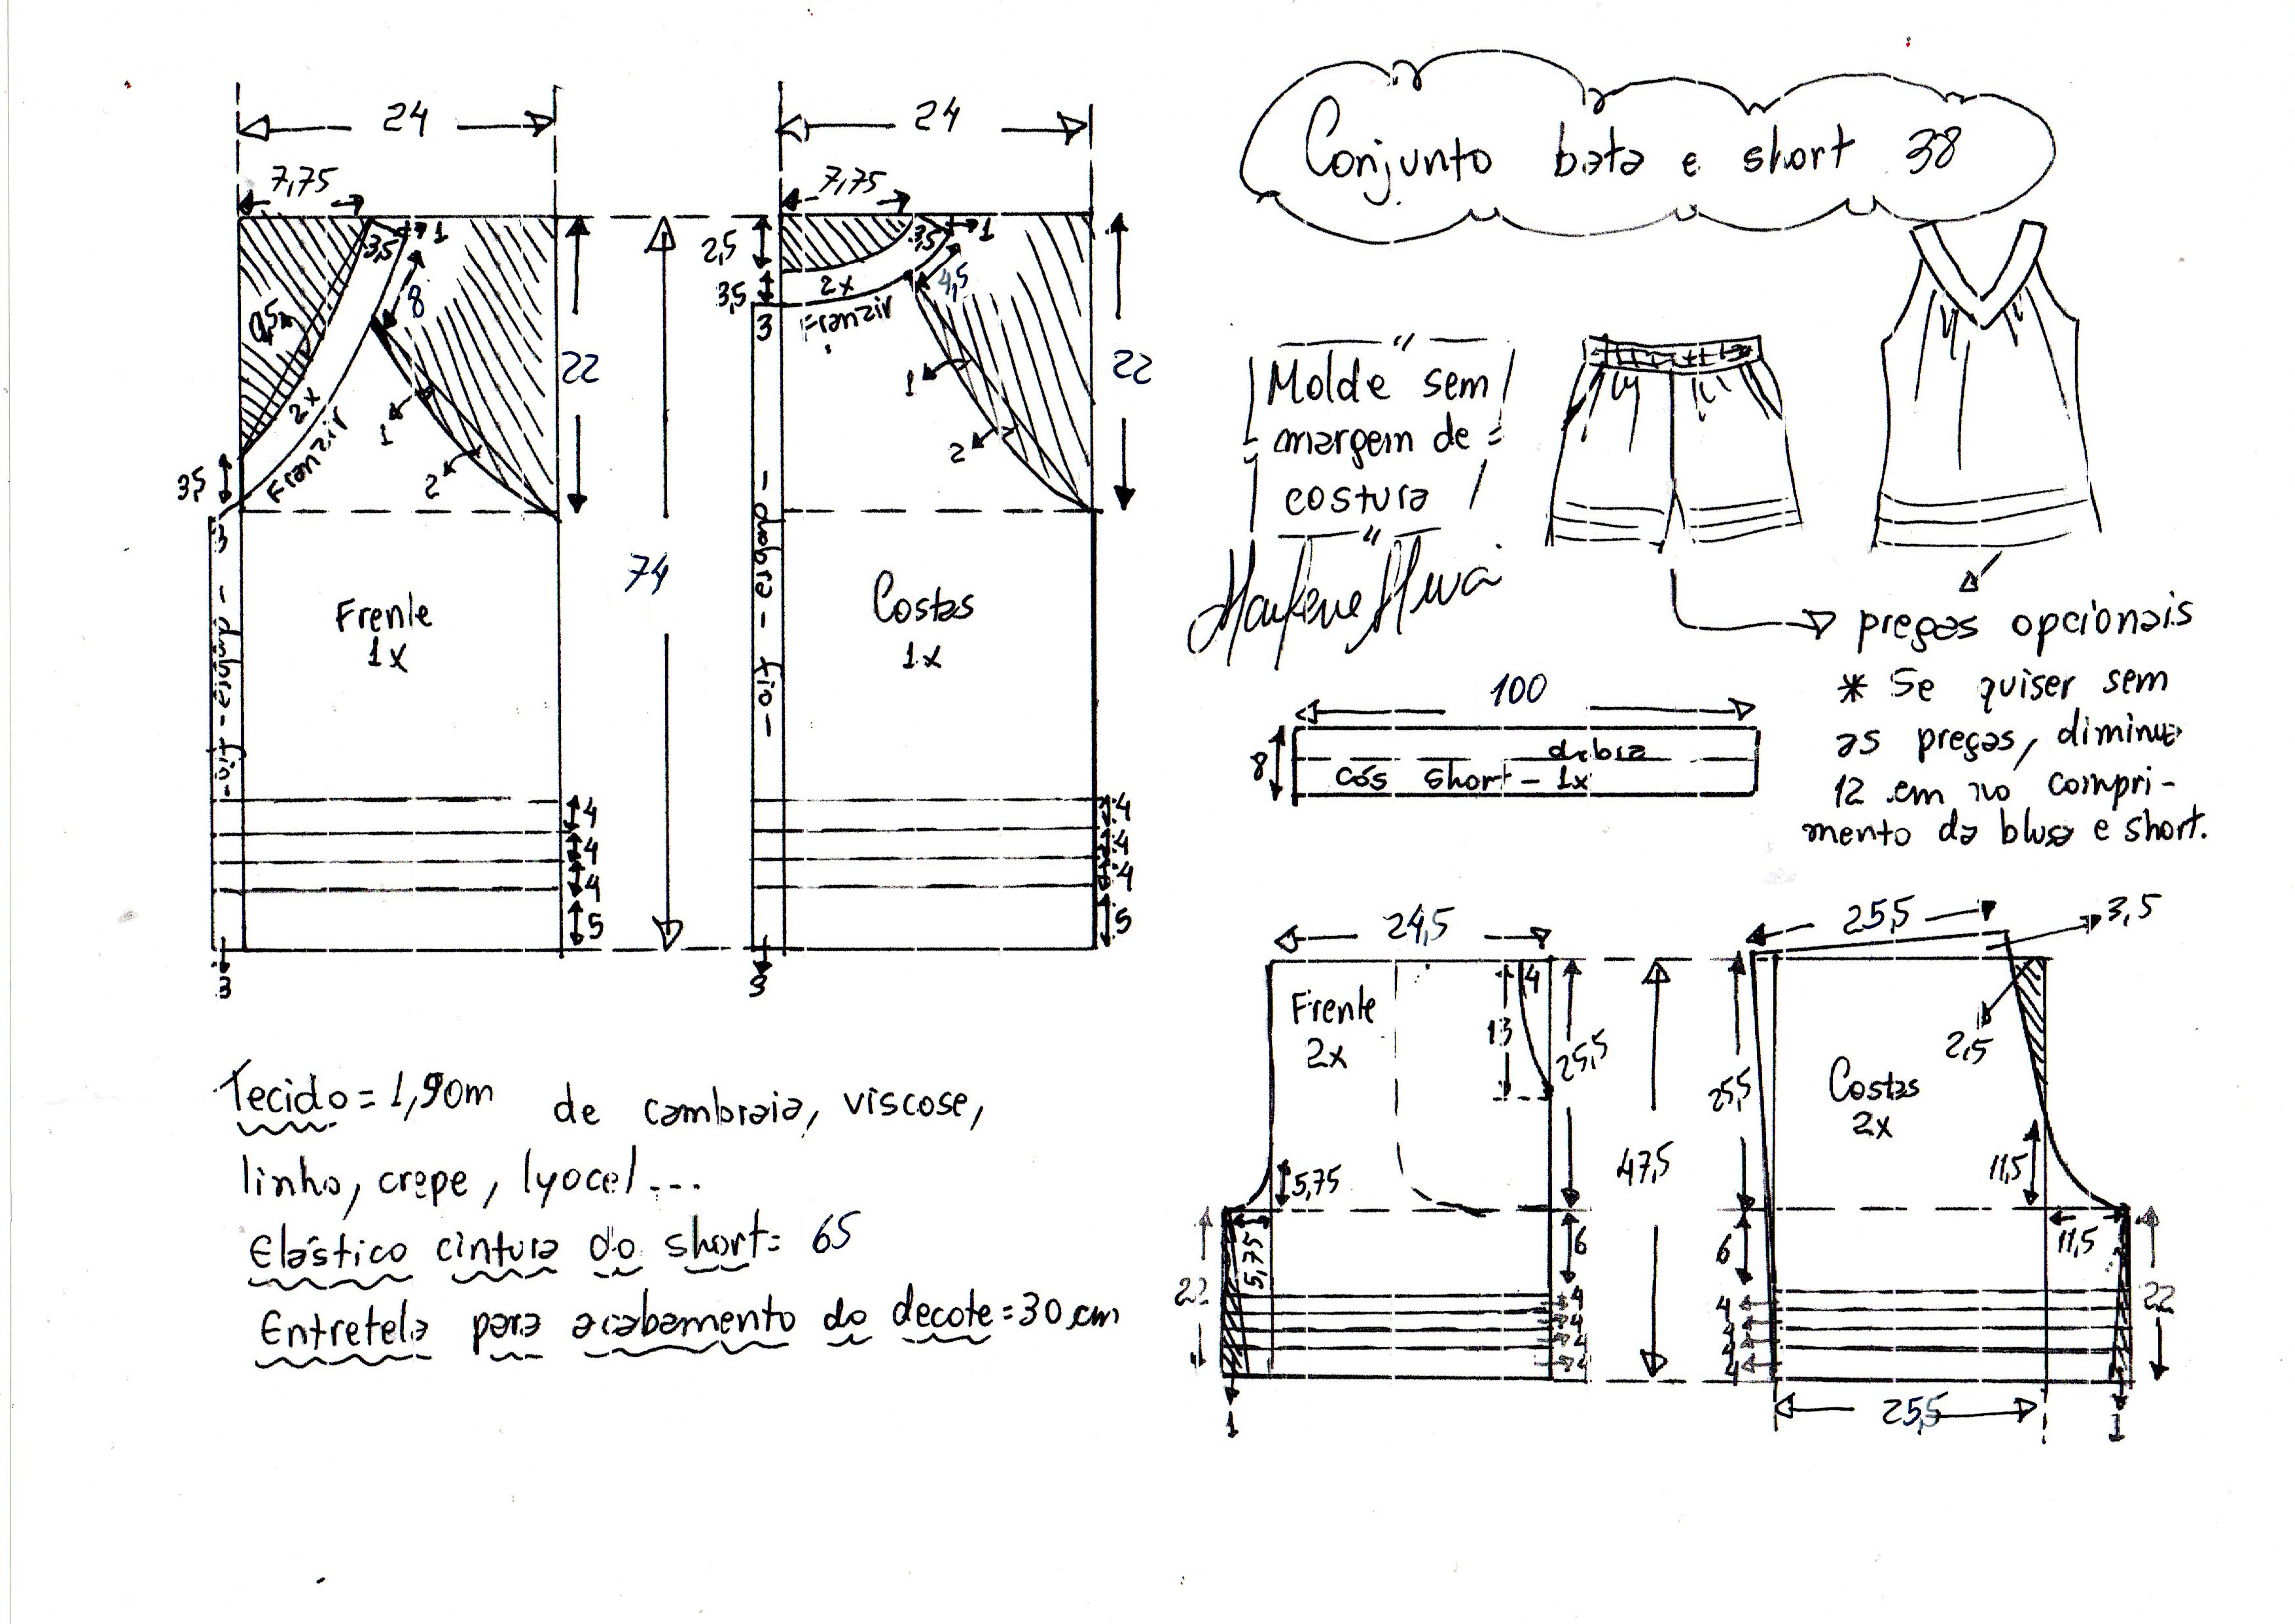 Conjunto bata e short 38
24
7,75
3,5
1
8
0,5
2x
Franzir
1
2
3,5
3
22
dobra - fio -
Frente
1x
4
4
4
5
3
74
24
7,75
2,5
3,5
1
4,5
2x
3,5
Franzir
3
1
2
22
- dobra - fio -
Costas
1x
4
4
4
5
3
"
Molde sem
margem de
costura
"
pregas opcionais
* Se quiser sem
as pregas, diminue
12 cm no compri-
mento da blusa e short.
100
8
dobra
cós short - 1x
Tecido = 1,90m de cambraia, viscose,
linho, crepe, lyocel...
Elástico cintura do short = 65
Entretela para acabamento do decote = 30 cm
24,5
Frente
2x
4
13
25,5
5,75
5,75
22
6
4
4
4
4
1
47,5
25,5
3,5
2,5
Costas
2x
25,5
11,5
11,5
6
4
4
4
4
22
25,5
1